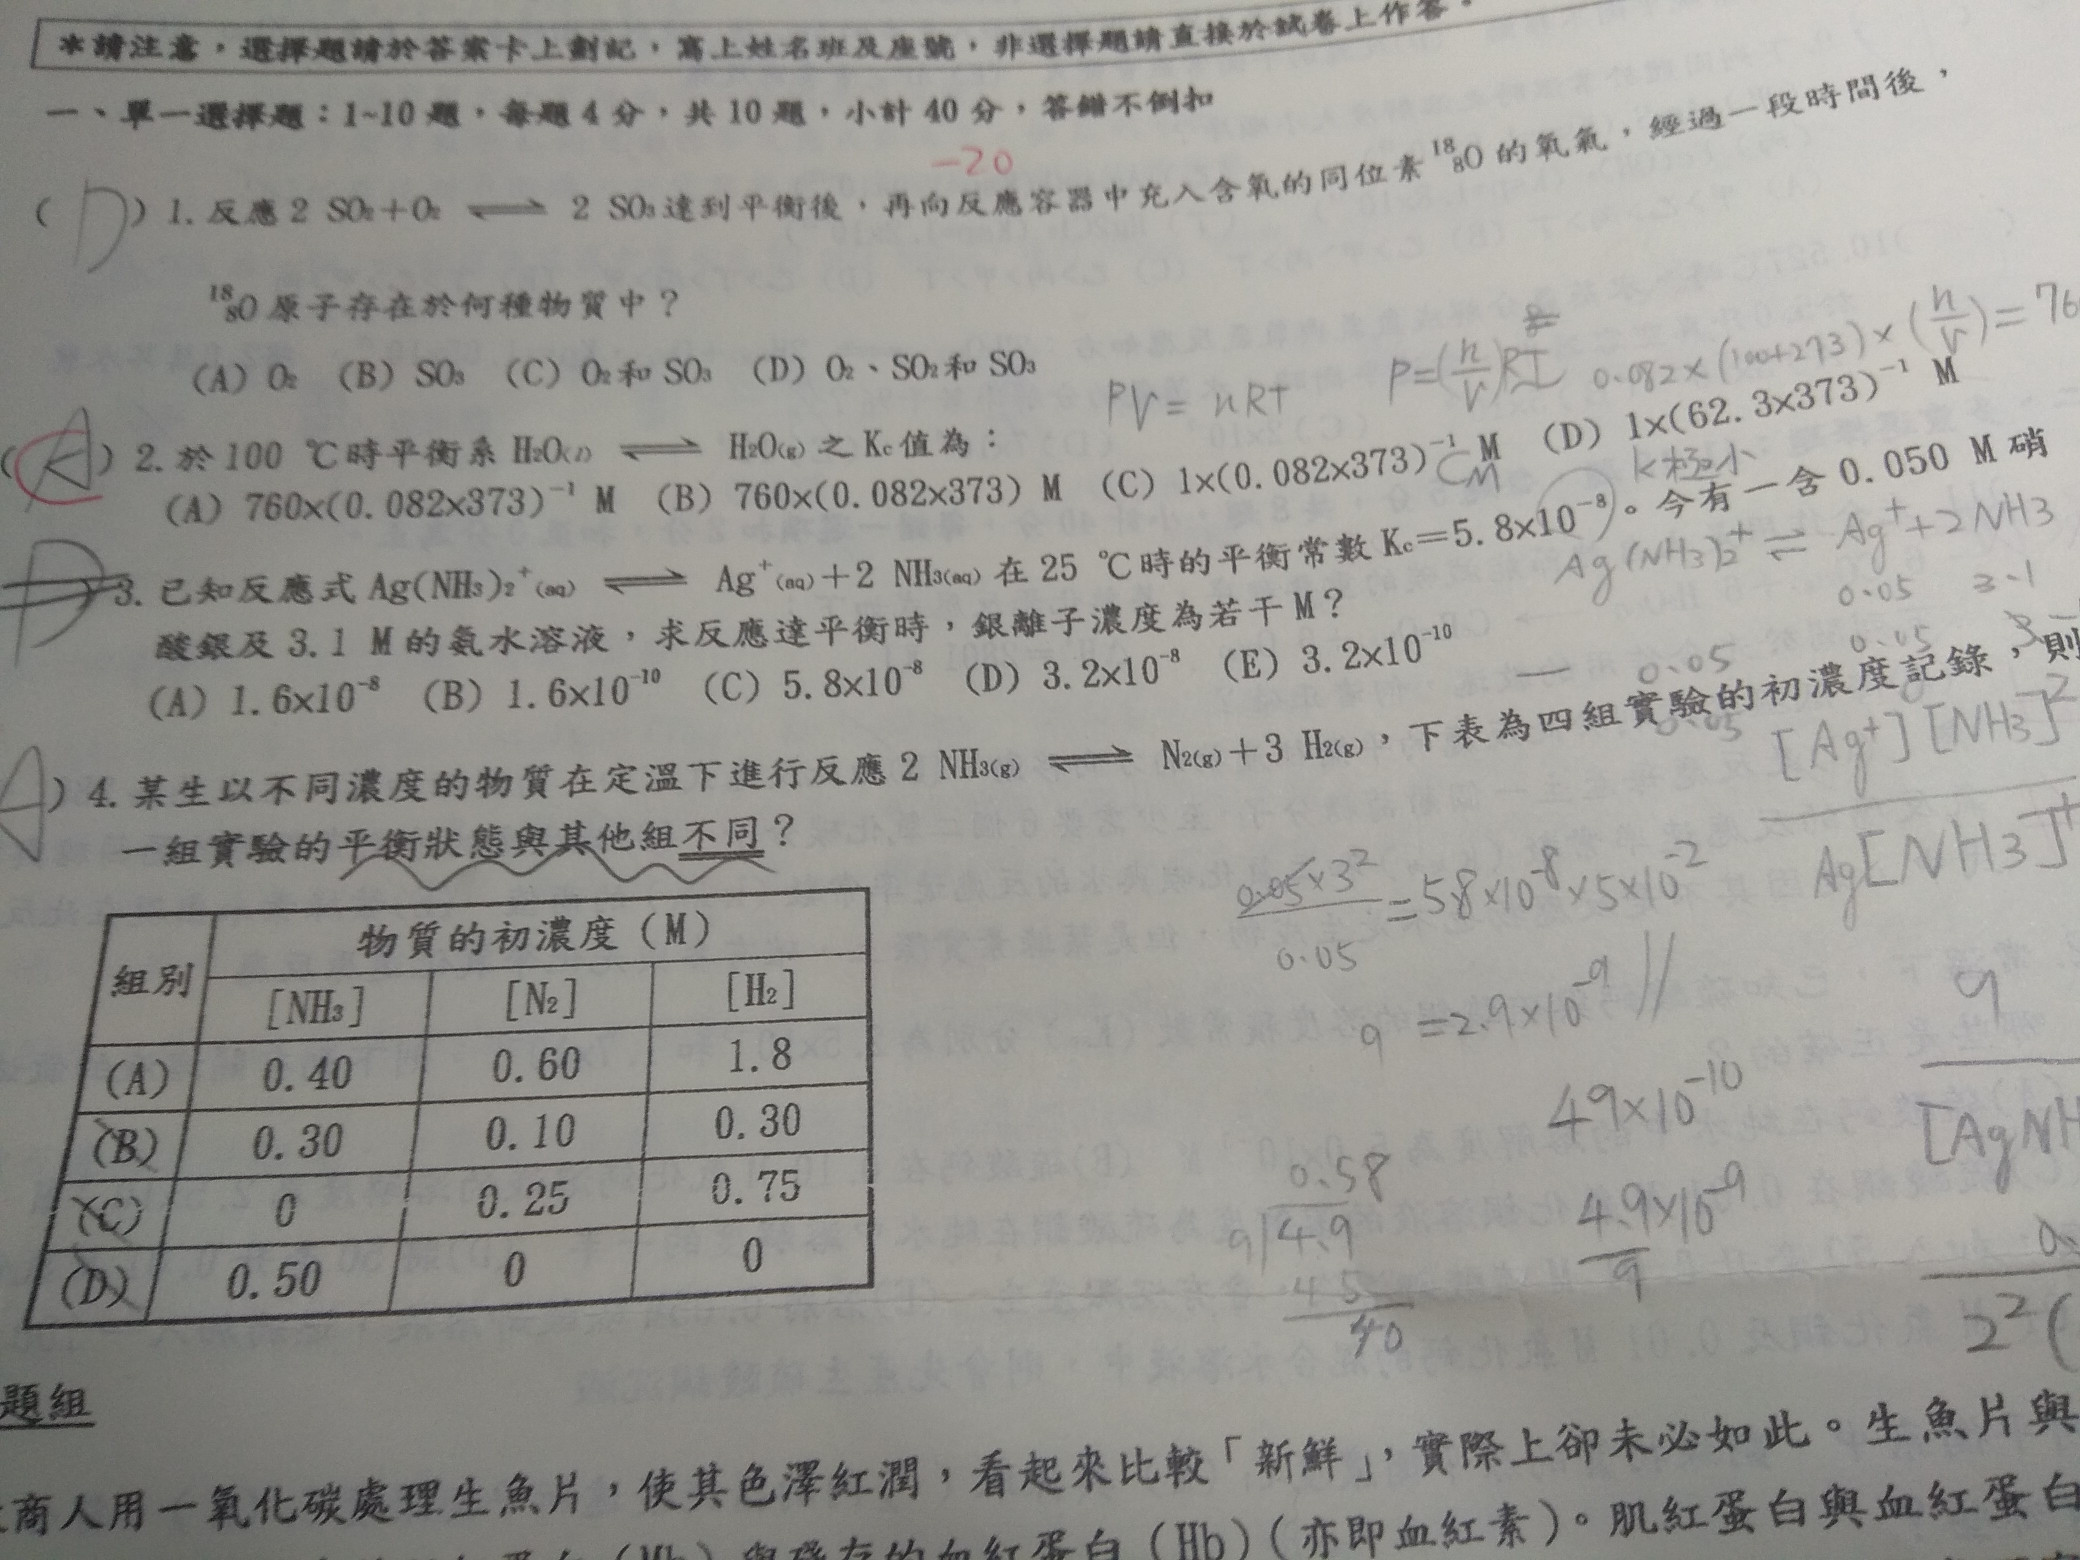 *請注意，選擇題請於答案卡上劃記，寫上姓名班及座號，非選擇題請直接於試卷上作答。
一、單一選擇題：1~10 題，每題 4 分，共 10 題，小計 40 分，答錯不倒扣
-20
( D ) 1. 反應 2 SO₂+O₂ ⇌ 2 SO₃ 達到平衡後，再向反應容器中充入含氧的同位素 ¹⁸₈O 的氧氣，經過一段時間後，
¹⁸₈O 原子存在於何種物質中？
(A) O₂ (B) SO₃ (C) O₂ 和 SO₃ (D) O₂、SO₂ 和 SO₃
PV = nRT
P=(n/V)RT
0.082×(100+273)×(n/V)=76
( A ) 2. 於 100 ℃時平衡系 H₂O(l) ⇌ H₂O(g) 之 Kc 值為：
(A) 760×(0.082×373)⁻¹ M (B) 760×(0.082×373) M (C) 1×(0.082×373)⁻¹ M (D) 1×(62.3×373)⁻¹ M
CM
K極小
D ) 3. 已知反應式 Ag(NH₃)₂⁺(aq) ⇌ Ag⁺(aq)+2 NH₃(aq) 在 25 ℃時的平衡常數 Kc=5.8×10⁻⁸。今有一含 0.050 M 硝
酸銀及 3.1 M 的氨水溶液，求反應達平衡時，銀離子濃度為若干 M？
(A) 1.6×10⁻⁸ (B) 1.6×10⁻¹⁰ (C) 5.8×10⁻⁸ (D) 3.2×10⁻⁸ (E) 3.2×10⁻¹⁰
Ag(NH3)2⁺ ⇌ Ag⁺+2NH3
0.05 3.1
0.05 0.05
0.05
[Ag⁺][NH3]²
Ag[NH3]⁺
A ) 4. 某生以不同濃度的物質在定溫下進行反應 2 NH₃(g) ⇌ N₂(g)+3 H₂(g)，下表為四組實驗的初濃度記錄，則
一組實驗的平衡狀態與其他組不同？
組別 物質的初濃度（M）
[NH₃] [N₂] [H₂]
(A) 0.40 0.60 1.8
(B) 0.30 0.10 0.30
(C) 0 0.25 0.75
(D) 0.50 0 0
0.05×3²
0.05
=5.8×10⁻⁸×5×10⁻²
9 =2.9×10⁻⁹
49×10⁻¹⁰
4.9×10⁻⁹
9
0.58
9 4.9
45
40
9
[AgNH
0.
2²(
題組
商人用一氧化碳處理生魚片，使其色澤紅潤，看起來比較「新鮮」，實際上卻未必如此。生魚片與
蛋白（Mb）與殘存的血紅蛋白（Hb）(亦即血紅素)。肌紅蛋白與血紅蛋白